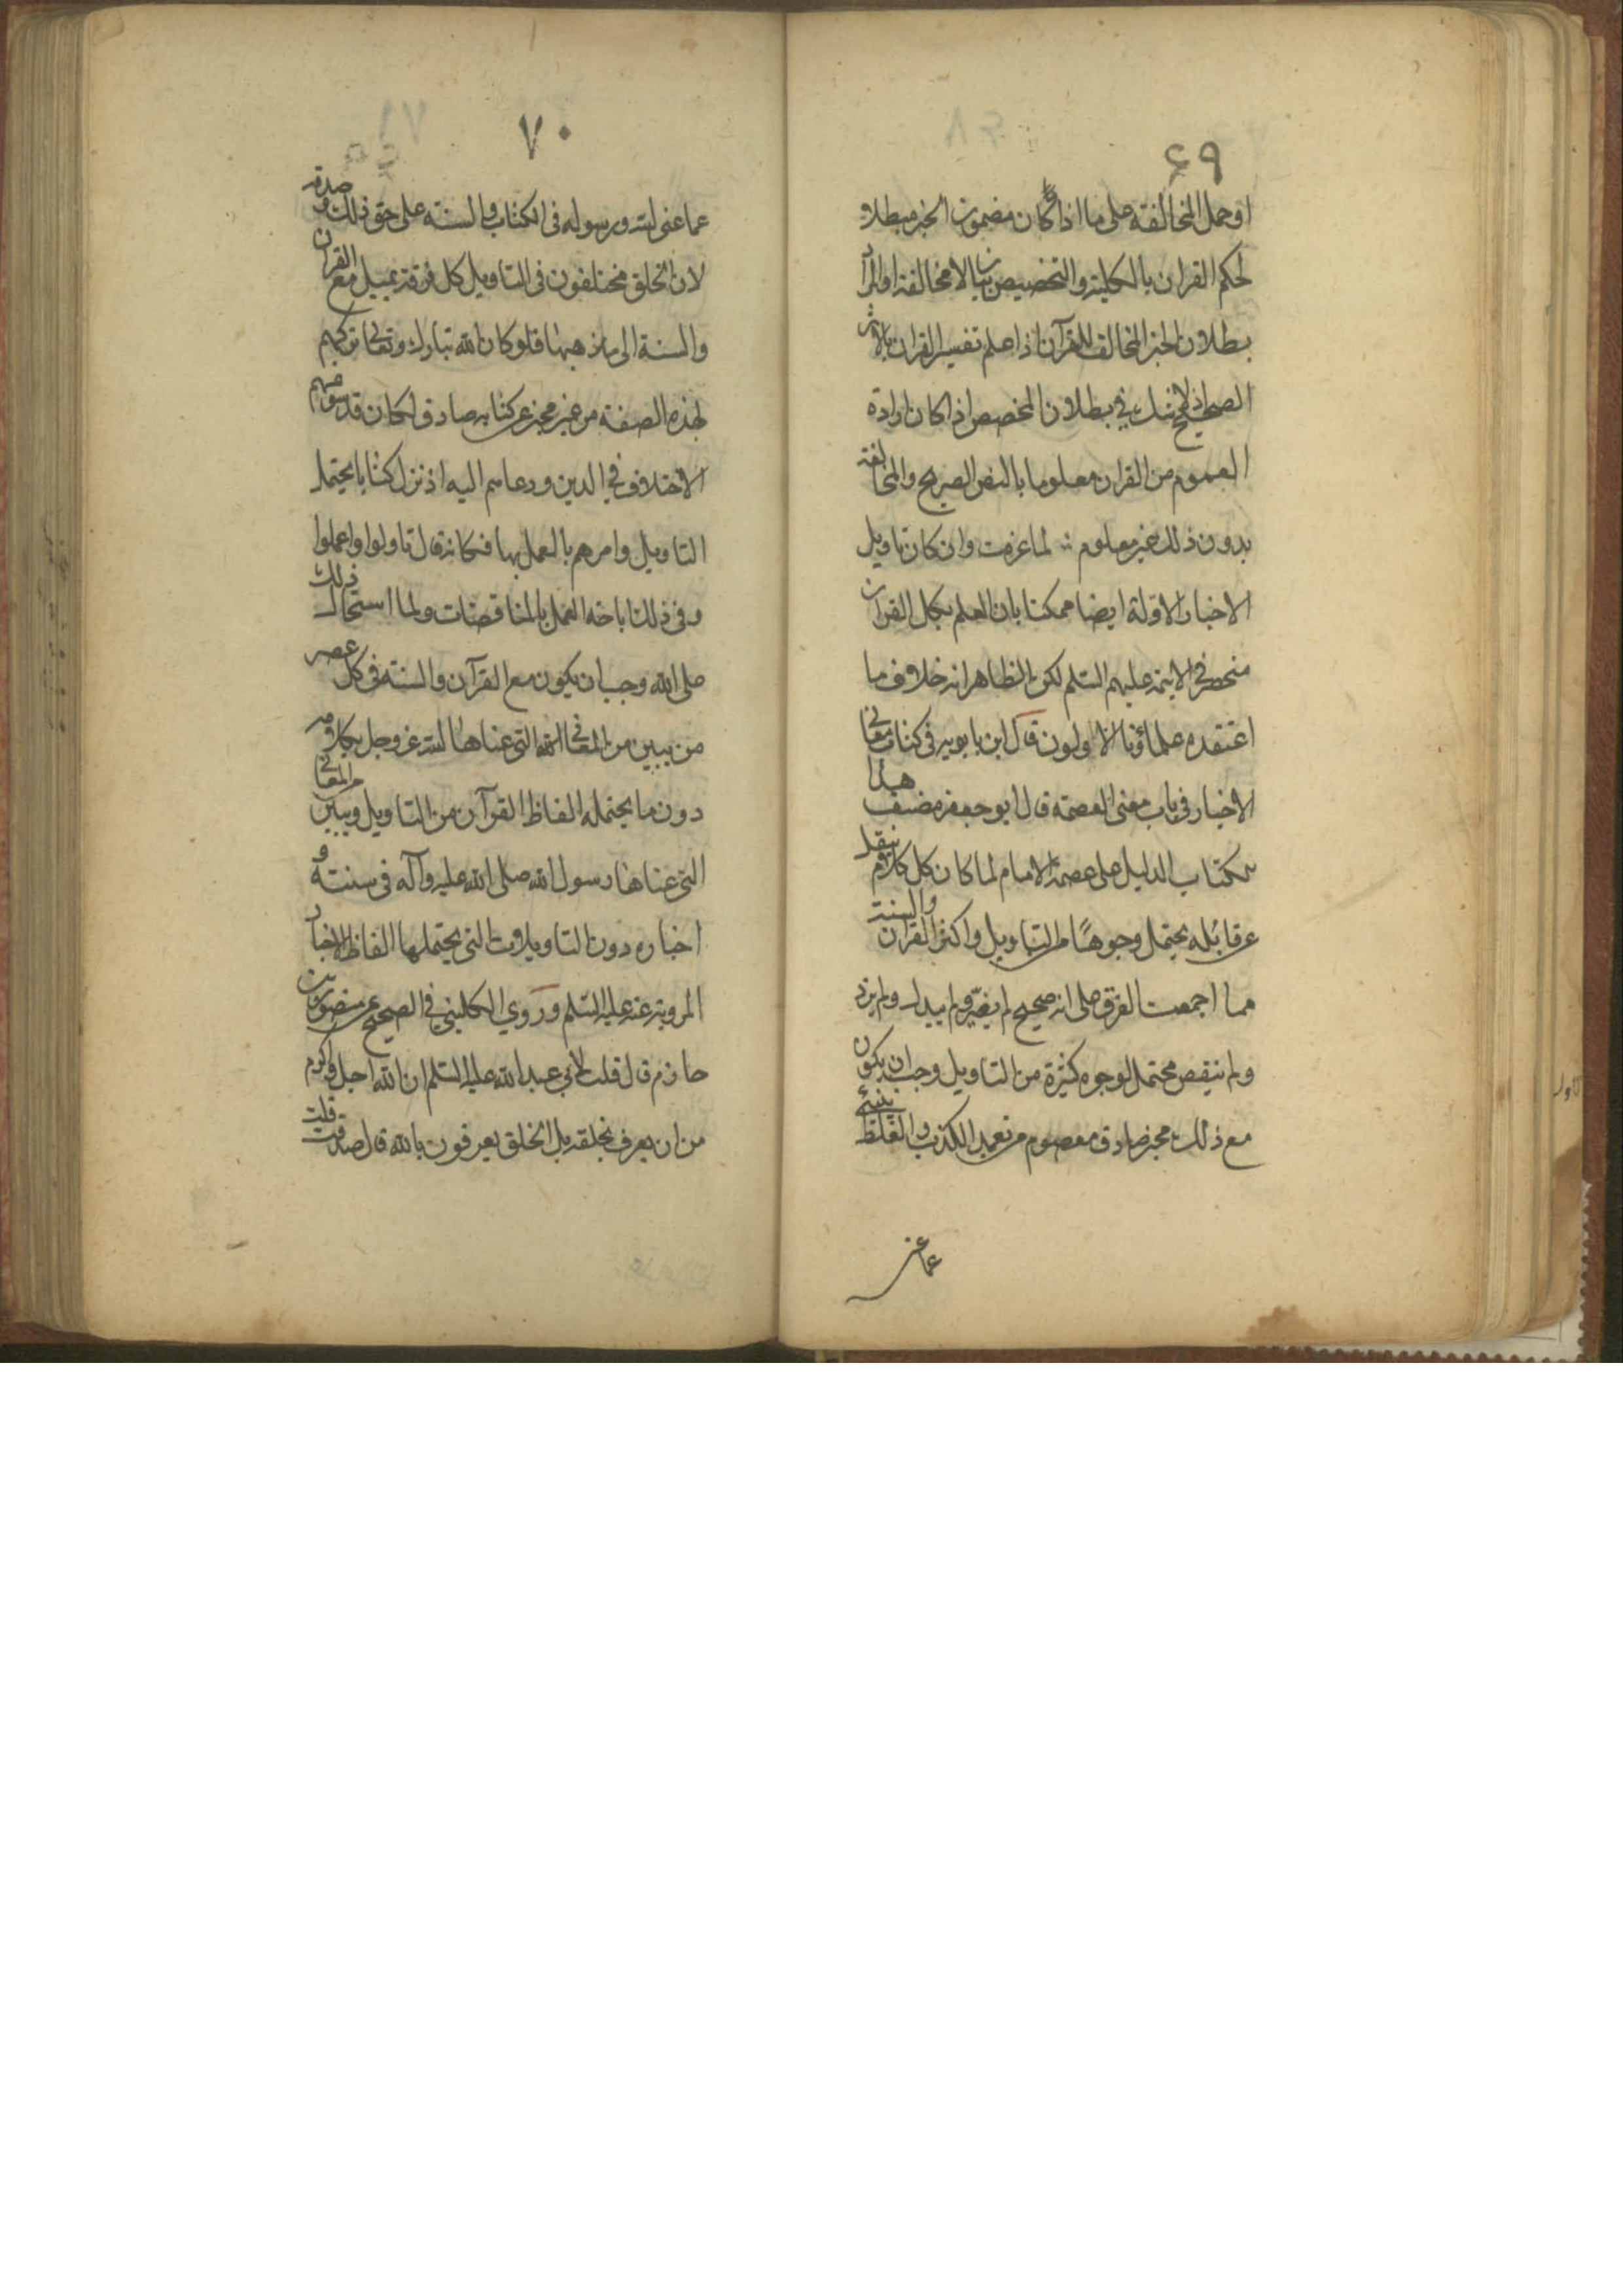 ٦٩
او حمل المخالفة على ما اذا كان مضمون الخبر مبطلا
لحكم القران بالكلية والتخصيص بيان لا مخالفة او المراد
بطلان الخبر المخالف للقرآن اذا علم تفسير القران بالاثر
الصحيح اذ لا شك في بطلان المخصص اذا كان ارادة
العموم من القران معلوما بالنص الصريح والمخالفة
بدون ذلك غير معلوم لما عرفت وان كان تاويل
الاخبار الاولة ايضا ممكنا بان العلم بكل القران
منحصر في الائمة عليهم السلم لكن الظاهر انه خلاف ما
اعتقده علماؤنا الاولون قال ابن بابويه في كتاب معاني
الاخبار في باب معنى العصمة قال ابو جعفر مصنف هذا
الكتاب الدليل على عصمة الامام لما كان كل كلام ينقل
عن قائله يحتمل وجوها من التاويل واكثر القران والسنة
مما اجمعت الفرق على انه صحيح لم يغير ولم يبدل ولم يزد
ولم ينقص محتمل لوجوه كثيرة من التاويل وجب ان يكون
مع ذلك مخبر صادق معصوم من تعمد الكذب والغلط ينبئ
عما عنى
٧٠
عما عنى الله ورسوله في الكتاب والسنة على حق ذلك وصدقه
لان الخلق مختلفون في التاويل كل فرقة تميل مع القران
والسنة الى مذهبها فلو كان الله تبارك وتعالى تركهم
بهذه الصفة من غير مخبر عن كتابه صادق لكان قد سوغهم
الاختلاف في الدين ودعاهم اليه اذ نزل كتابا يحتمل
التاويل وامرهم بالعمل بها فكانه قال تاولوا واعملوا
وفي ذلك اباحة العمل بالمتناقضات ولما استحال ذلك
على الله وجب ان يكون مع القرآن والسنة في كل عصر
من يبين من المعاني التي عناها الله عز وجل بكلامه
دون ما يحتمله الفاظ القرآن من التاويل ويبين من المعاني
التي عناها رسول الله صلى الله عليه وآله في سنته و
اخباره دون التاويلات التي يحتملها الفاظ الاخبار
المروية عنه عليه السلم وروي الكليني في الصحيح عن منصور بن
حازم قال قلت لابي عبد الله عليه السلم ان الله اجل واكرم
من ان يعرف بخلقه بل الخلق يعرفون بالله قال صدقت قلت